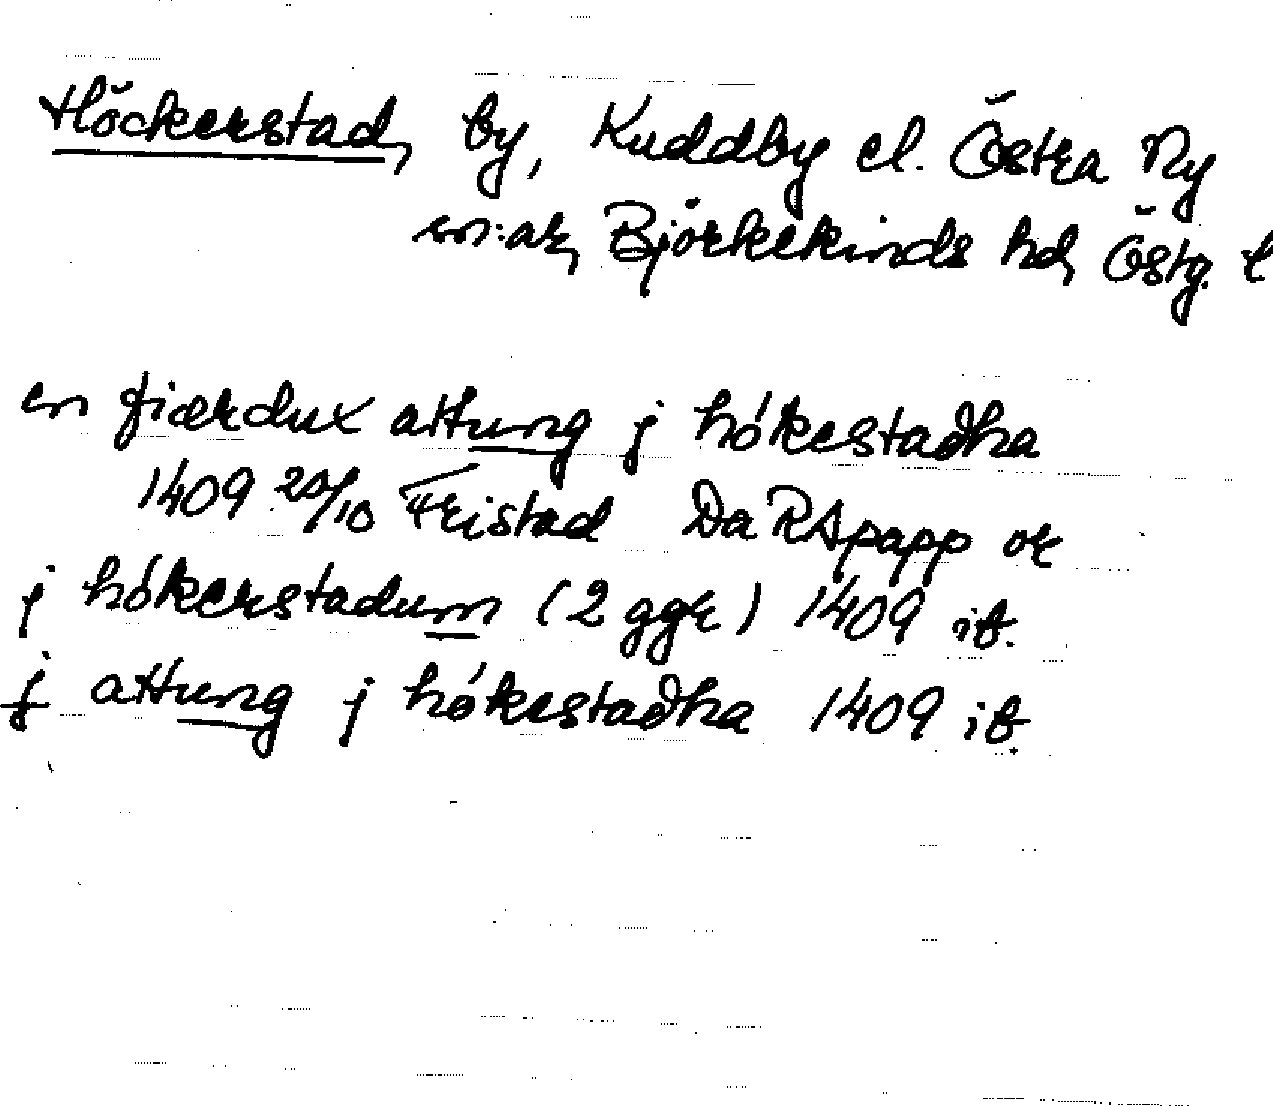 Höckerstad, by, Kuddby el. Östra Ny
sn:ar, Björkekinds hd, Östg. l
en fiærdux attung j hókestadha
1409 20/10 Fristad Da RApapp or
j hókerstadum (2 ggr) 1409 ib.
j attung j hókestadha 1409 ib.